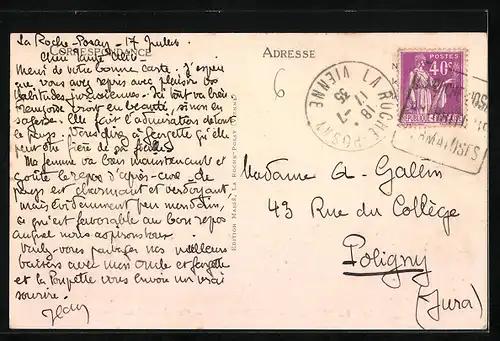 La Roche-Posay - 17 Juillet
CORRESPONDANCE
Merci de votre bonne carte. J'espère
que vous avez repris avec plaisir vos
habitudes jurassiennes. Ici tout va bien
en beauté, sinon en
sagesse. Elle fait l'admiration de tout
le pays. Vous direz à Georgette qu'elle
peut être fière de sa
Ma femme va bien maintenant et
goûte le repos d'après-cure - Le
pays est charmant et verdoyant
mais évidemment peu mondain,
ce qui est favorable au bon repos
auquel nous aspirons tous.
Veuillez vous partager nos meilleurs
baisers avec mon oncle et Georgette
et la Poupette vous envoie un vrai
sourire.
Jean
EDITION MAGÉ, LA ROCHE-POSAY
ADRESSE
6
LA ROCHE-POSAY
VIENNE
18 -7
35
POSTES
40c
DERMATOSES
Madame A. Gallin
43 Rue du Collège
Poligny
(Jura)